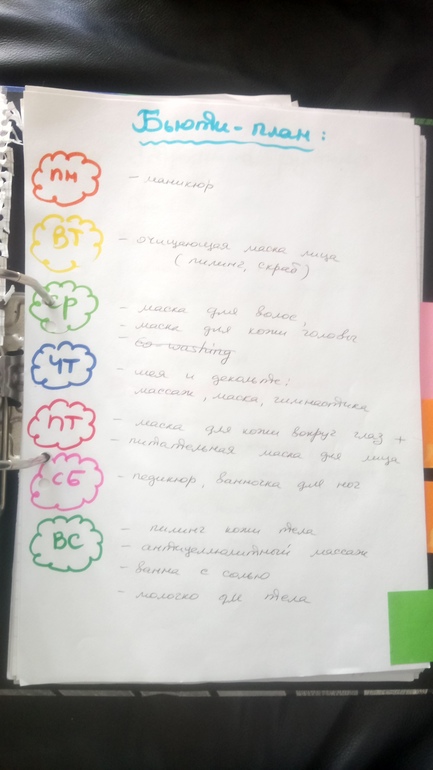 Бьюти-план:
ПН
- маникюр
ВТ
- очищающая маска лица
(пилинг, скраб)
СР
- маска для волос,
- маска для кожи головы
- co-washing
ЧТ
- шея и декольте:
массаж, маска, гимнастика
ПТ
- маска для кожи вокруг глаз +
- питательная маска для лица
СБ
- педикюр, ванночка для ног
ВС
- пилинг кожи тела
- антицеллюлитный массаж
- ванна с солью
- молоко для тела